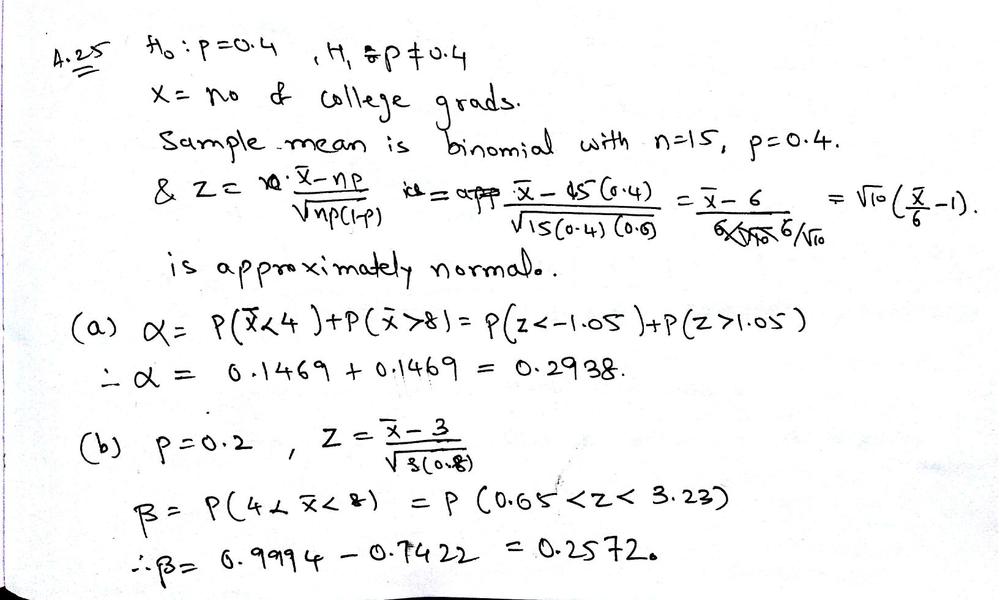 A.25 H₀ : p=0.4 , H₁ : p≠0.4
X = no of college grads.
Sample mean is binomial with n=15, p=0.4.
& Z = (x̄-np)/√(np(1-p)) = (x̄ - 15(0.4))/√(15(0.4)(0.6)) = (x̄ - 6)/(6/√10) = √10 (x̄/6 - 1).
is approximately normal.
(a) α = P(x̄<4)+P(x̄>8) = P(z<-1.05)+P(z>1.05)
∴ α = 0.1469 + 0.1469 = 0.2938.
(b) p=0.2 , Z = (x̄ - 3)/√(3(0.8))
β = P(4< x̄< 8) = P (0.65 <z< 3.23)
∴β = 0.9994 - 0.7422 = 0.2572.